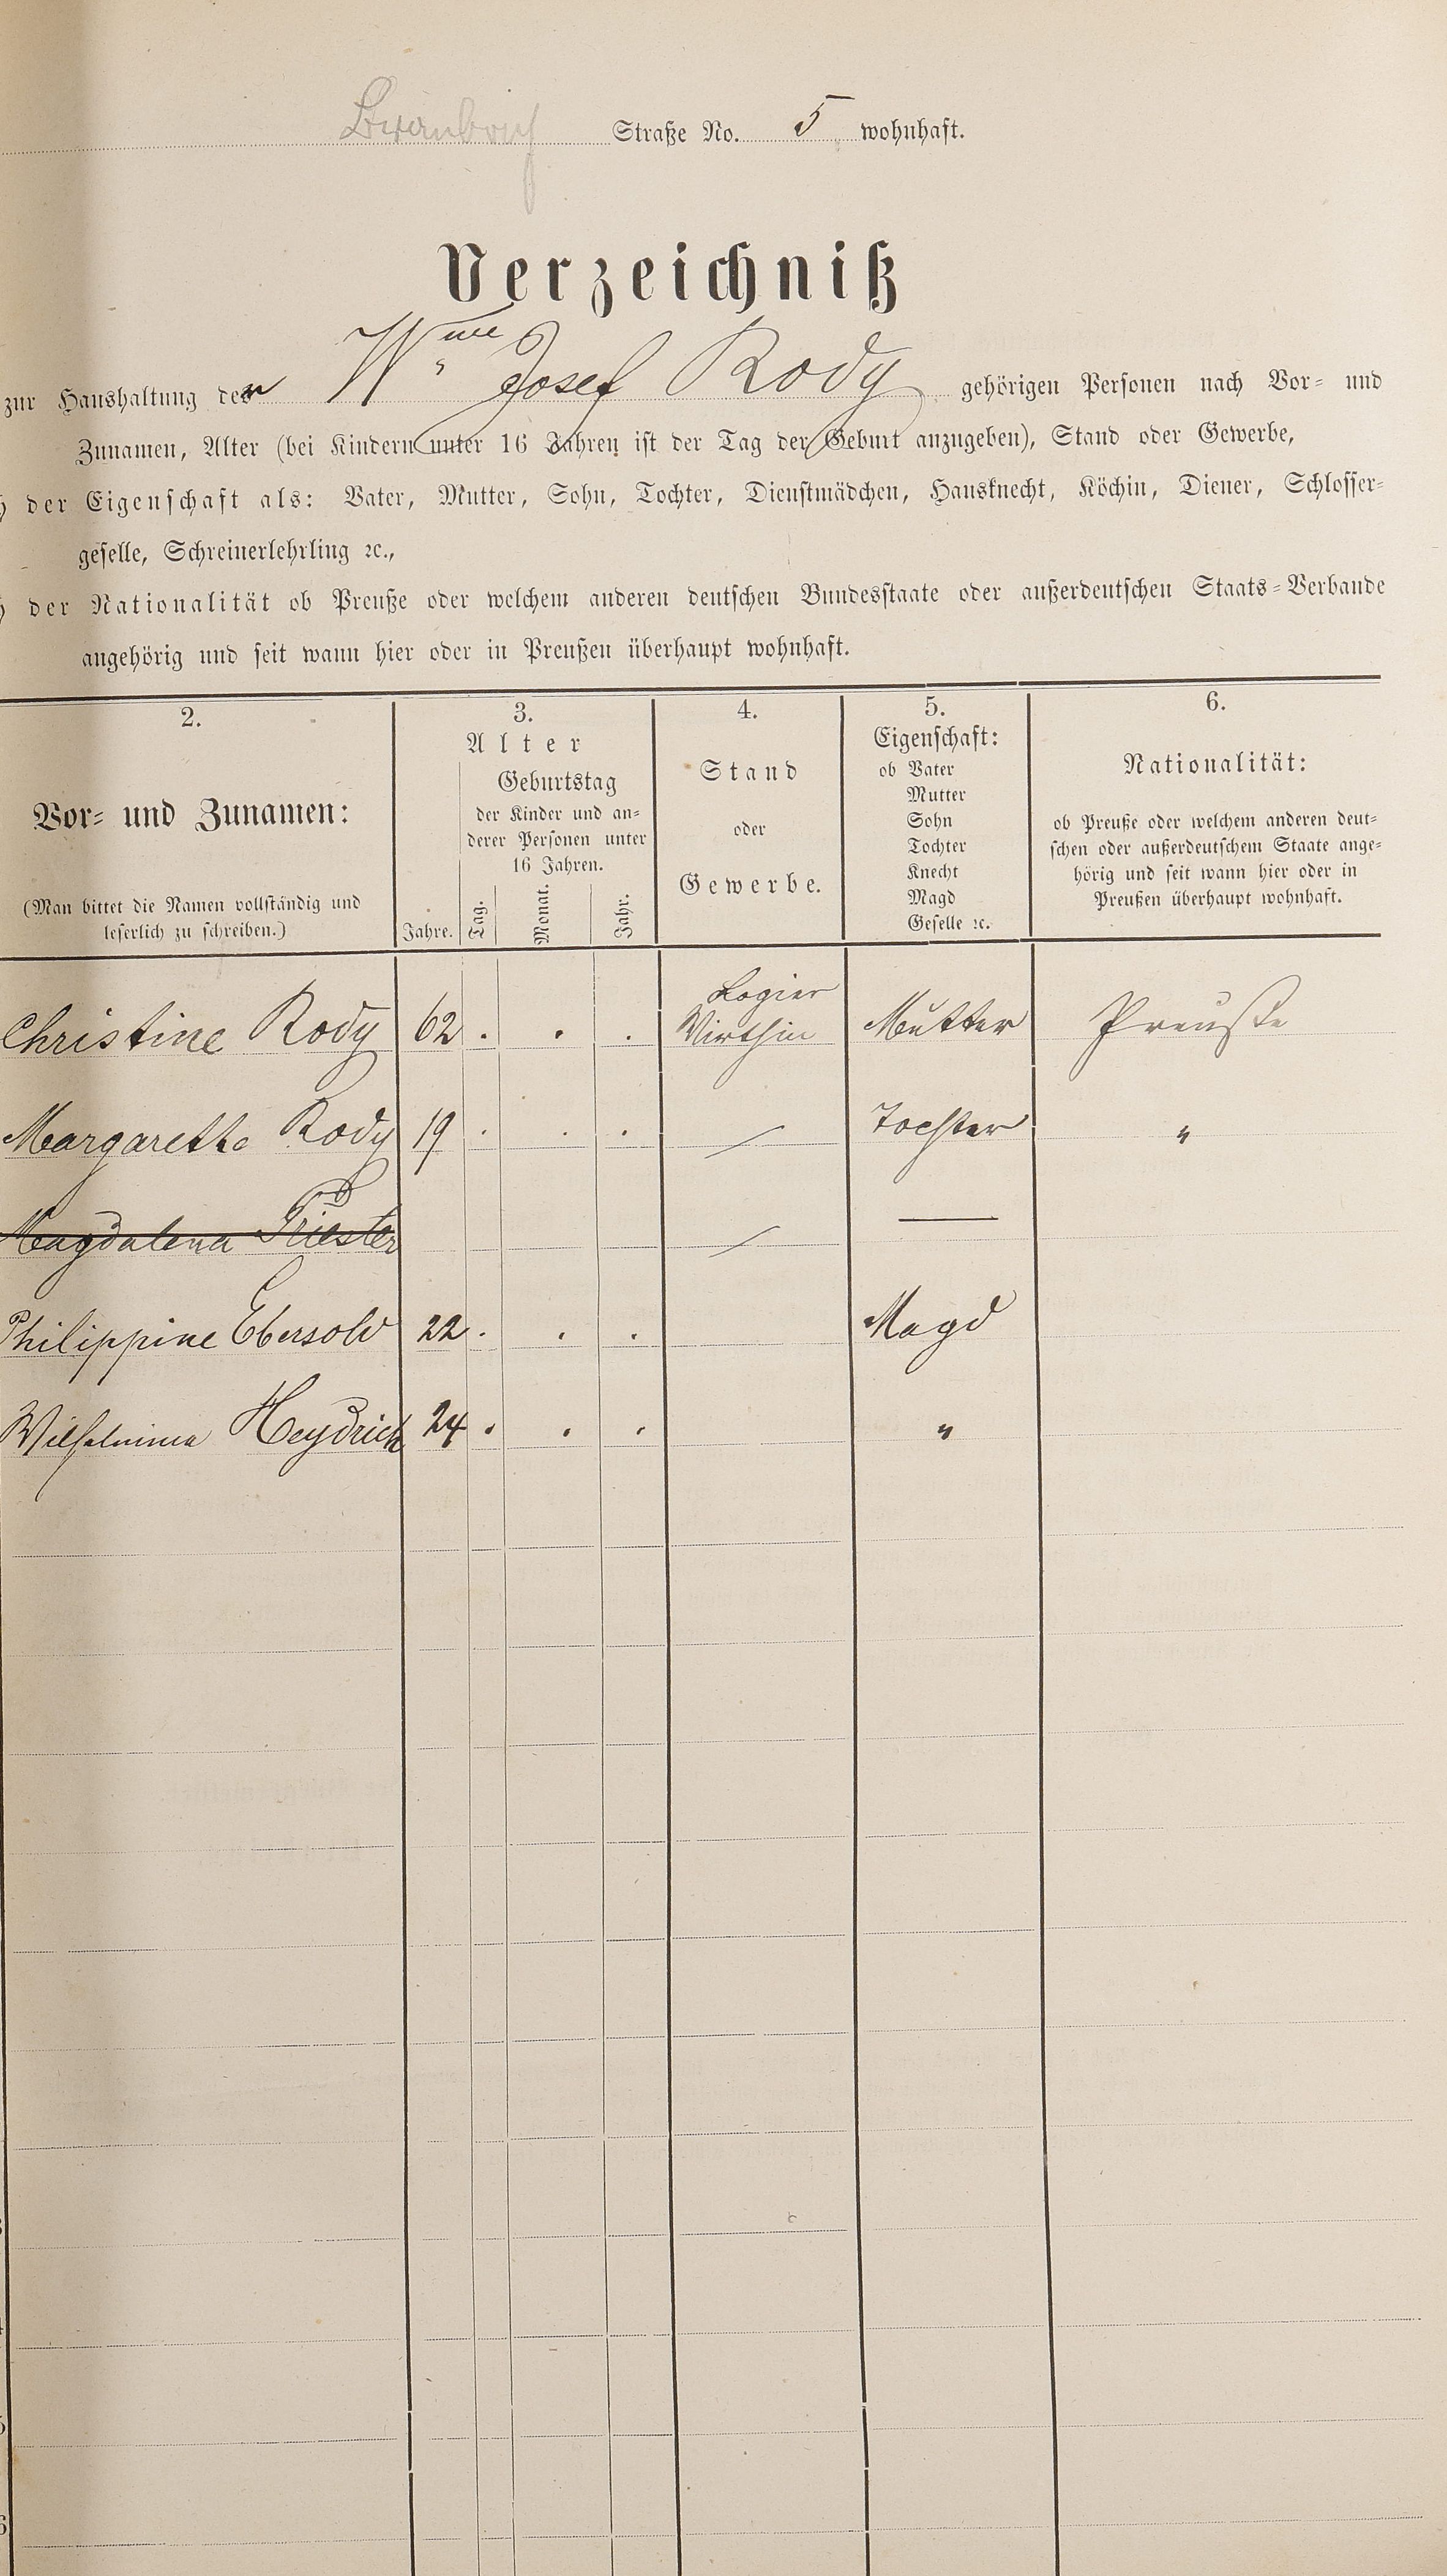 Straße No. 5 wohnhaft.
Verzeichniß
zur Haushaltung der Wwe Josef Rody gehörigen Personen nach Vor- und
Zunamen, Alter (bei Kindern unter 16 Jahren ist der Tag der Geburt anzugeben), Stand oder Gewerbe,
der Eigenschaft als: Vater, Mutter, Sohn, Tochter, Dienstmädchen, Hausknecht, Köchin, Diener, Schlosser-
geselle, Schreinerlehrling ꝛc.,
der Nationalität ob Preuße oder welchem anderen deutschen Bundesstaate oder außerdeutschen Staats-Verbande
angehörig und seit wann hier oder in Preußen überhaupt wohnhaft.
2.
Vor- und Zunamen:
(Man bittet die Namen vollständig und
leserlich zu schreiben.)
3.
Alter
Jahre.
Geburtstag
der Kinder und an-
derer Personen unter
16 Jahren.
Tag. Monat. Jahr.
4.
Stand
oder
Gewerbe.
5.
Eigenschaft:
ob Vater
Mutter
Sohn
Tochter
Knecht
Magd
Geselle ꝛc.
6.
Nationalität:
ob Preuße oder welchem anderen deut-
schen oder außerdeutschem Staate ange-
hörig und seit wann hier oder in
Preußen überhaupt wohnhaft.
Christine Rody 62 . . . Logier Wirthin Mutter Preuße
Margarethe Rody 19 . . . Tochter "
Magdalena Triester
Philippine Ebersold 22 . . . Magd
Wilhelmina Heydrich 24 . . . "